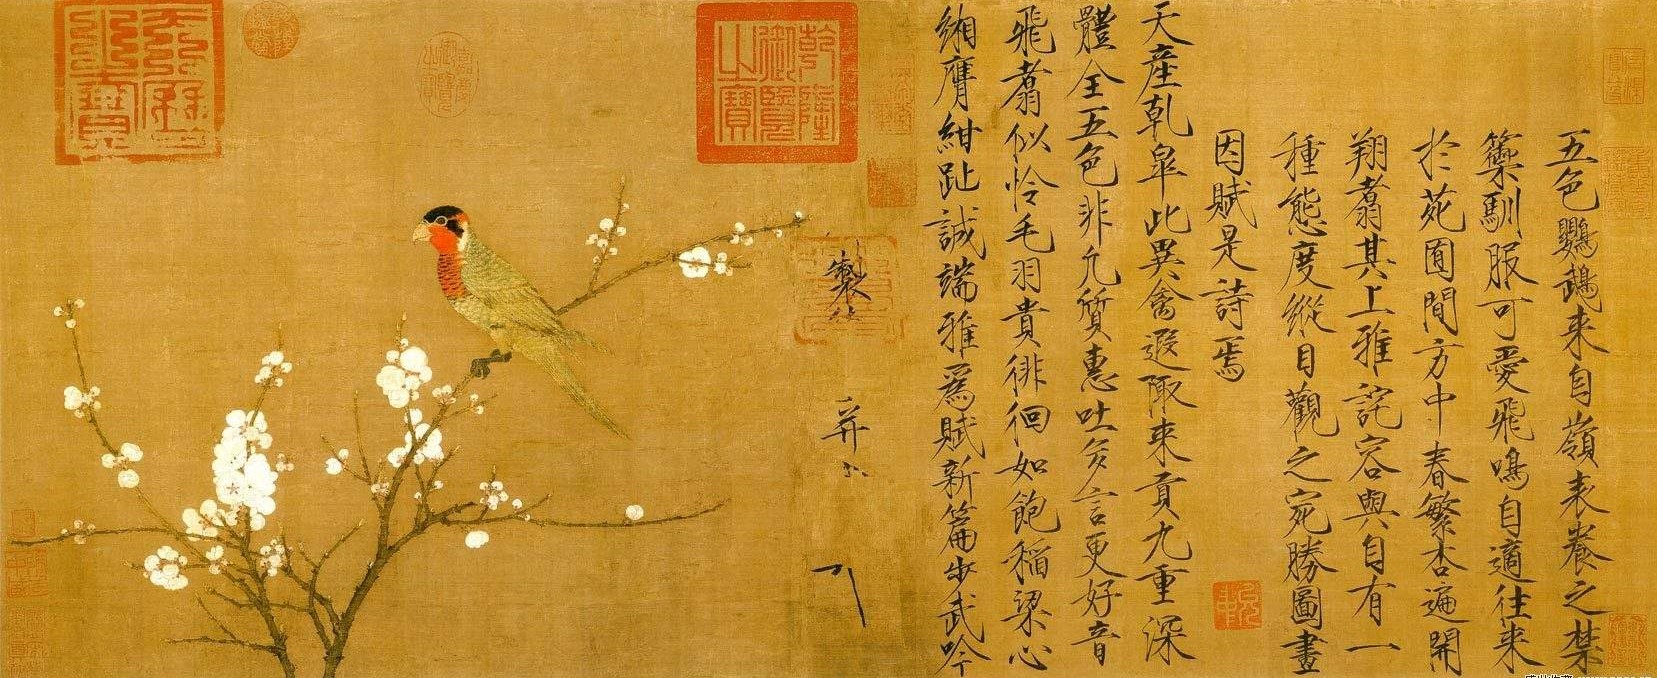 五色鸚鵡来自嶺表養之禁
籞馴服可愛飛鳴自適往来
於苑囿間方中春繁杏遍開
翔翥其上雅詫容與自有一
種態度縱目觀之宛勝圖畫
因賦是詩焉
天産乾皐此異禽遐陬来貢九重深
體全五色非凡質惠吐多言更好音
飛翥似怜毛羽貴徘徊如飽稲粱心
緗膺紺趾誠端雅爲賦新篇步武吟
乾隆御覽之寶
製
并
天曆之寶